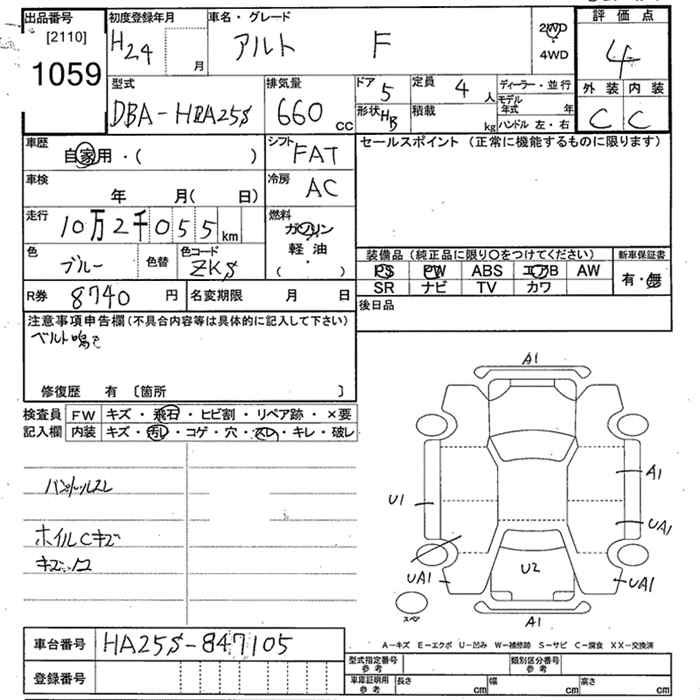 出品番号
[2110]
1059
初度登録年月
H24 月
車名・グレード
アルト F
2WD
4WD
評価点
4
外装 内装
C C
型式
DBA-HBA25S
排気量
660 CC
ドア 5
形状 HB
定員 4 人
積載 kg
ディーラー・並行
モデル年式 年
ハンドル 左・右
車歴
自家用・( )
シフト
FAT
セールスポイント (正常に機能するものに限ります)
車検
年 月( 日)
冷房
AC
走行
10万2千055km
燃料
ガソリン
軽油
( ・ )
色
ブルー
色替
色コード
ZKS
装備品 (純正品に限り〇をつけてください)
PS PW ABS エアB AW
SR ナビ TV カワ
新車保証書
有・無
R券 8740 円
名変期限 月 日
後日品
注意事項申告欄(不具合内容等は具体的に記入して下さい)
ベルト鳴き
修復歴 有 〔箇所 〕
検査員
記入欄
FW キズ・飛石・ヒビ割・リペア跡・×要
内装 キズ・汚レ・コゲ・穴・スレ・キレ・破レ
ハンドルスレ
ホイルCキズ
A1
U1
A1
UA1
UA1
U2
UA1
スペア
A1
車台番号 HA25S-847105
登録番号
A-キズ E-エクボ U-凹み W-補修跡 S-サビ C-腐食 XX-交換済
型式指定番号
参考
類別区分番号
参考
車庫証明用
参考
長さ cm 幅 cm 高さ cm